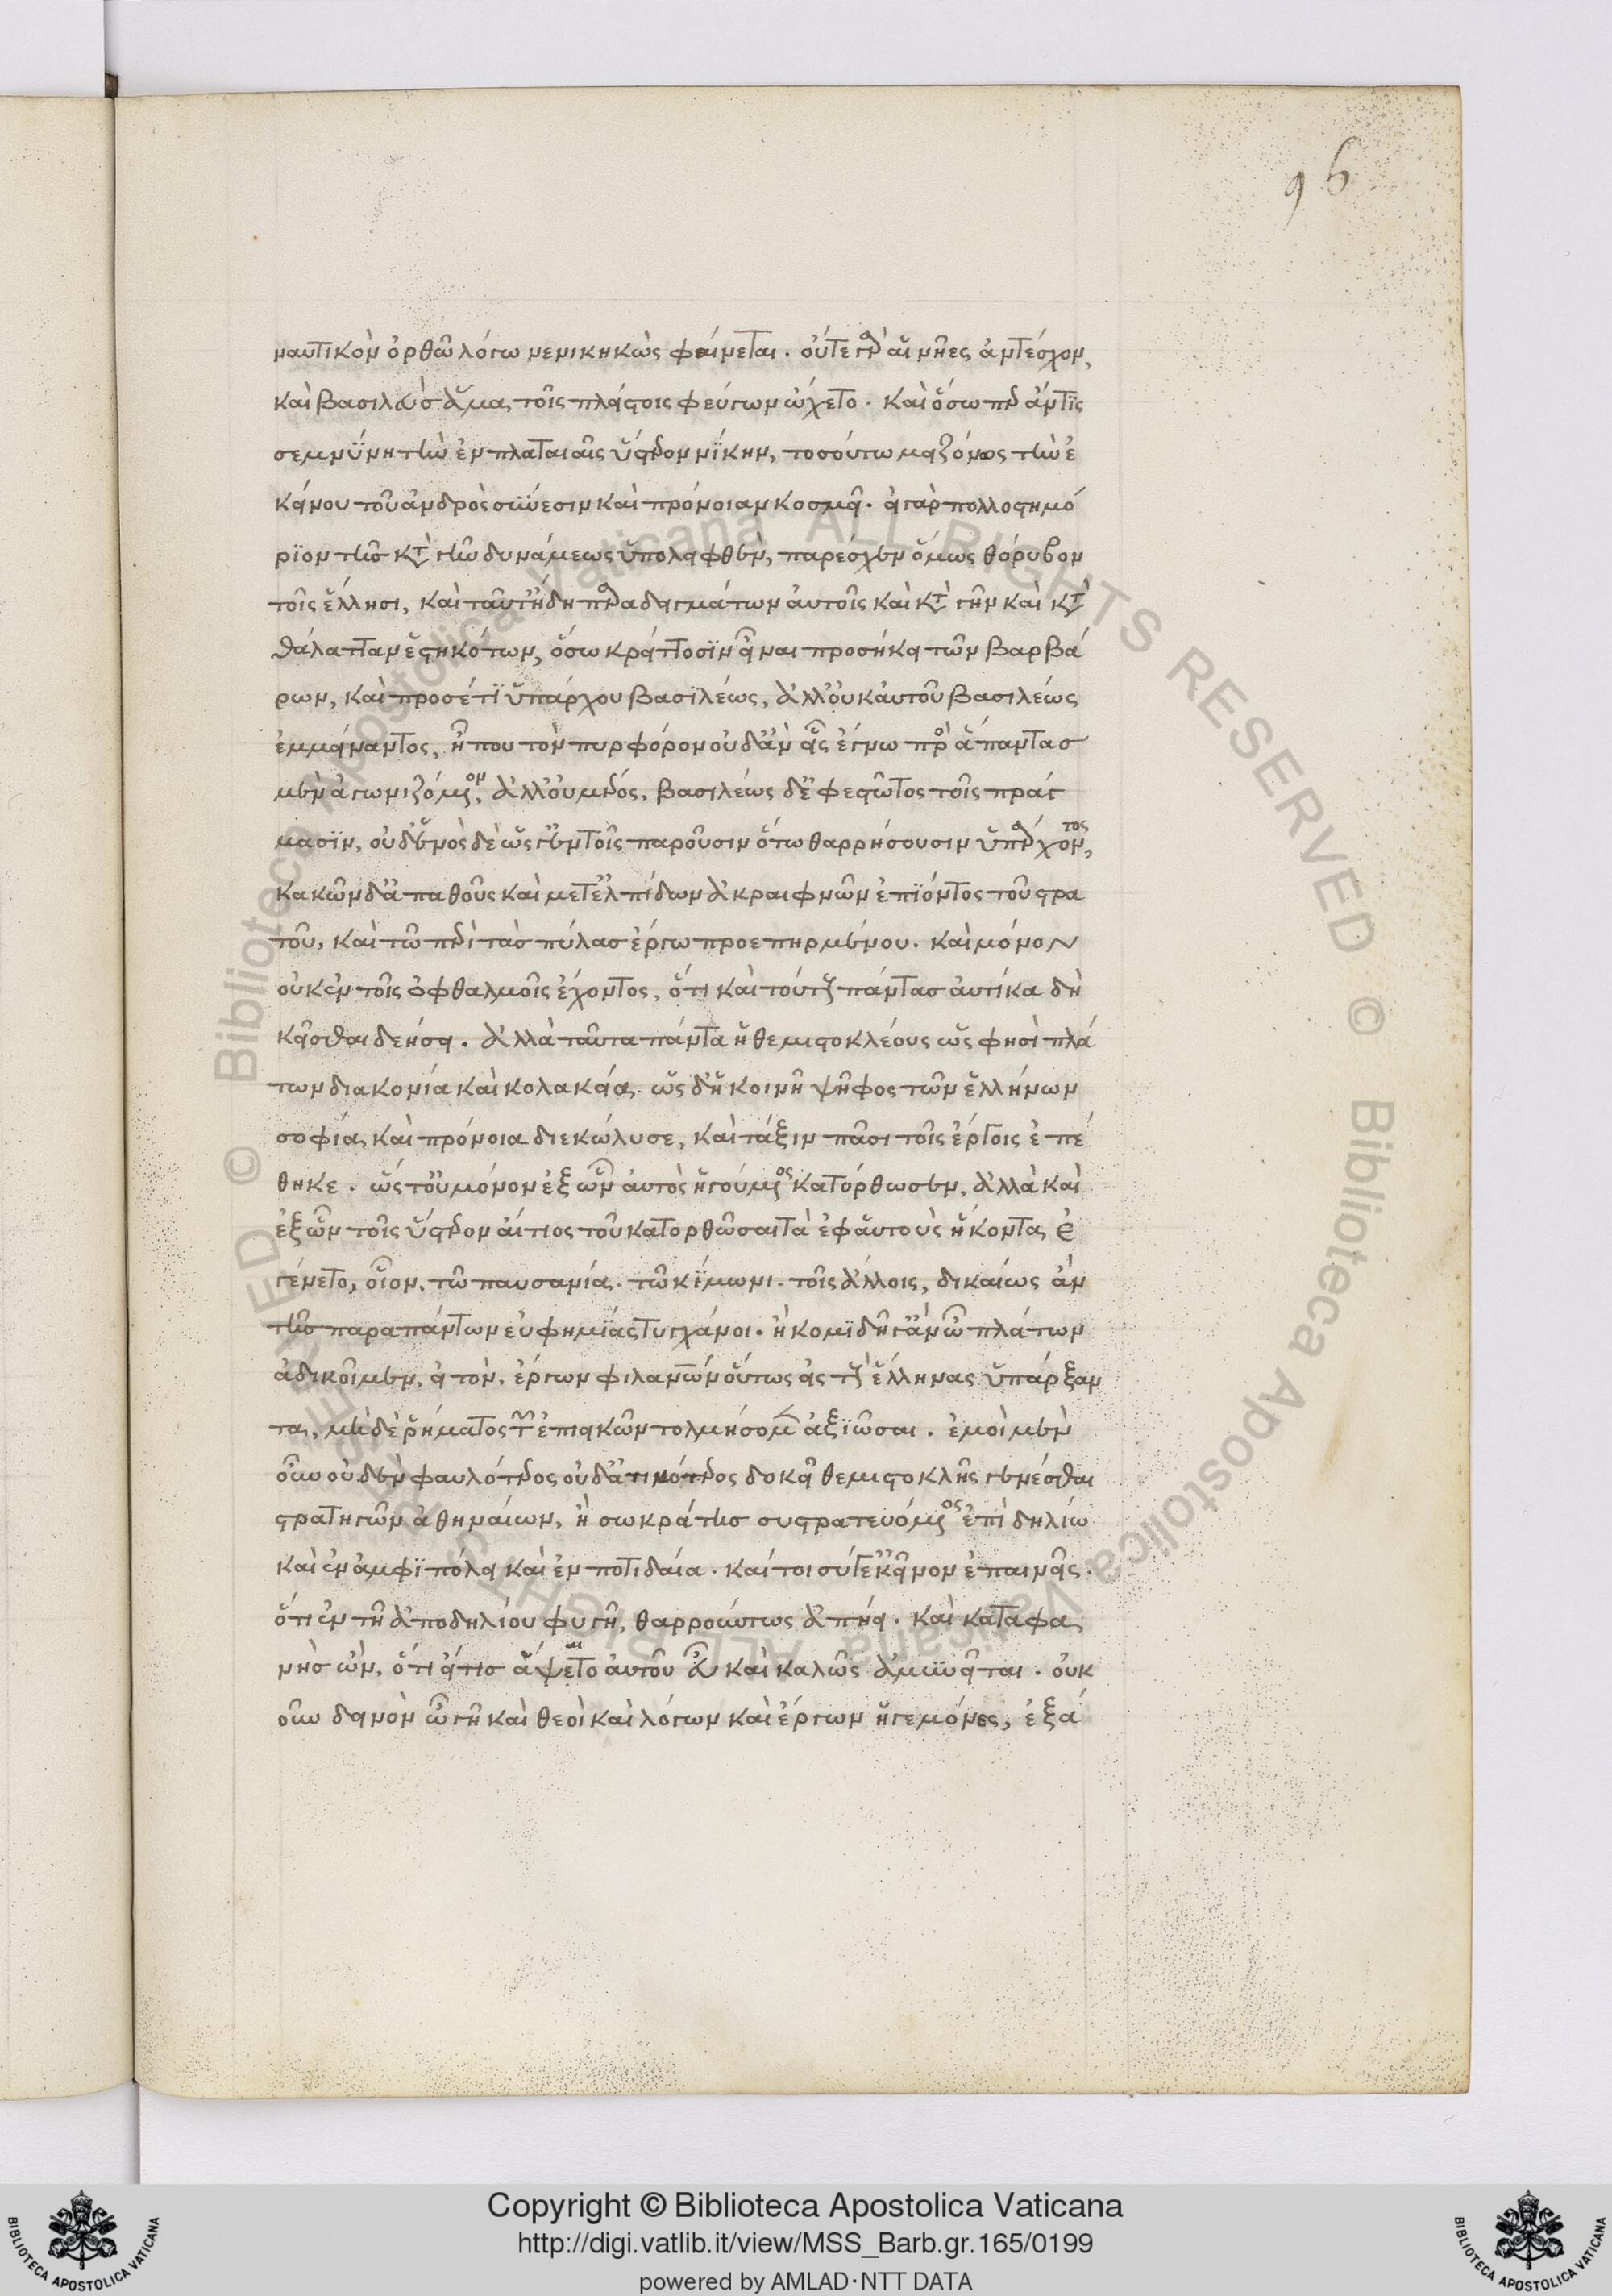 96
ναυτικὸν ὀρθῶ λόγω νενικηκὼς φαίνεται. οὔτε γὰρ αἱ νῆες ἀντέσχον,
καὶ βασιλεὺς ἅμα τοῖς πλείστοις φεύγων ὤχετο. καὶ ὅσω περ ἄν τϊς
σεμνΰνη τὴν ἐν πλαταιαῖς ὕστερον νΐκην, τοσούτω μειζόνως τὴν ἐ
κείνου τοῦ ἀνδρὸς σΰνεσιν καὶ πρόνοιαν κοσμεῖ. εἰ γὰρ πολλοστημό
ρϊον τῆς κατὰ γῆν δυνάμεως ὑπολειφθὲν, παρέσχεν ὅμως θόρυβον
τοῖς ἕλλησι, καὶ ταῦτ' ἤδη παραδειγμάτων αὐτοῖς καὶ κατὰ γῆν καὶ κατὰ
θάλατταν ἑστηκότων, ὅσω κρείττοσϊν εἶναι προσήκει τῶν βαρβά
ρων, καὶ προσέτϊ ὑπάρχου βασϊλέως, ἀλλ' οὐκ αὐτοῦ βασιλέως
ἐμμείναντος, ἦ που τὸν πυρφόρον οὐδ' ἂν εἷς ἔγνω πρὸς ἅπαντας
μὲν ἀγωνιζόμενον, ἀλλ' οὐ μέρος, βασιλέως δ' ἐφεστῶτος τοῖς πράγ
μασϊν, οὐδενὸς δὲ ὥς γ' ἐν τοῖς παροῦσιν ὅτω θαρρήσουσιν ὑπάρχοντος,
κακῶν δ' ἀπαθοῦς καὶ μετ' ἐλπίδων ἀκραιφνῶν ἐπϊόντος τοῦ στρα
τοῦ, καὶ τῶ περὶ τὰς πύλας ἔργω προεπηρμένου. καὶ μόνον
οὐκ ἐν τοῖς ὀφθαλμοῖς ἔχοντος, ὅτι καὶ τούτους πάντας αὐτίκα δὴ
κεῖσθαι δεήσει. ἀλλὰ ταῦτα πάντα ἡ θεμιστοκλέους ὥς φησὶ πλά
των διακονία καὶ κολακεία. ὡς δ' ἡ κοινὴ ψῆφος τῶν ἑλλήνων
σοφία καὶ πρόνοια διεκώλυσε, καὶ τάξιν πᾶσι τοῖς ἔργοις ἐπέ
θηκε. ὥστ' οὐ μόνον ἐξ ὧν αὐτὸς ἡγούμενος κατόρθωσεν, ἀλλὰ καὶ
ἐξ ὧν τοῖς ὕστερον αἴτιος τοῦ κατορθῶσαι τὰ ἐφ' αὑτοὺς ἥκοντα ἐ
γένετο, οἷον, τῶ παυσανία. τῶ κΐμωνι. τοῖς ἄλλοις, δικαίως ἂν
τῆς παρὰ πάντων εὐφημΐας τυγχάνοι. ἢ κομϊδῆ γ' ἂν ὦ πλάτων
ἀδικοῖμεν, εἰ τὸν, ἔργων φιλανων οὕτως εἰς τοὺς ἕλληνας ὑπάρξαν
τα, μὴδὲ ῥήματος τῶν ἐπιεικῶν τολμήσομεν ἀξϊῶσαι. ἐμοὶ μὲν
οὖν οὐδὲν φαυλότερος οὐδ' ἀτιμότερος δοκεῖ θεμιστοκλῆς γενέσθαι
στρατηγῶν ἀθηναίων, ἢ σωκράτης συστρατευόμενος ἐπὶ δηλίω
καὶ ἐν ἀμφϊπόλει καὶ ἐν ποτιδαία. καίτοι σύ γ' ἐκεῖνον ἐπαινεῖς.
ὅτι ἐν τῆ ἀπὸ δηλίου φυγῆ, θαρρούντως ἀπήει. καὶ καταφα
νὴς ὢν, ὅτι εἴ τις ἅψεται αὐτοῦ εὖ καὶ καλῶς ἀμΰνεῖται. οὐκ
οῦν δεινὸν ὦ γῆ καὶ θεοὶ καὶ λόγων καὶ ἔργων ἡγεμόνες, ἐξα
Copyright © Biblioteca Apostolica Vaticana
http://digi.vatlib.it/view/MSS_Barb.gr.165/0199
powered by AMLAD·NTT DATA